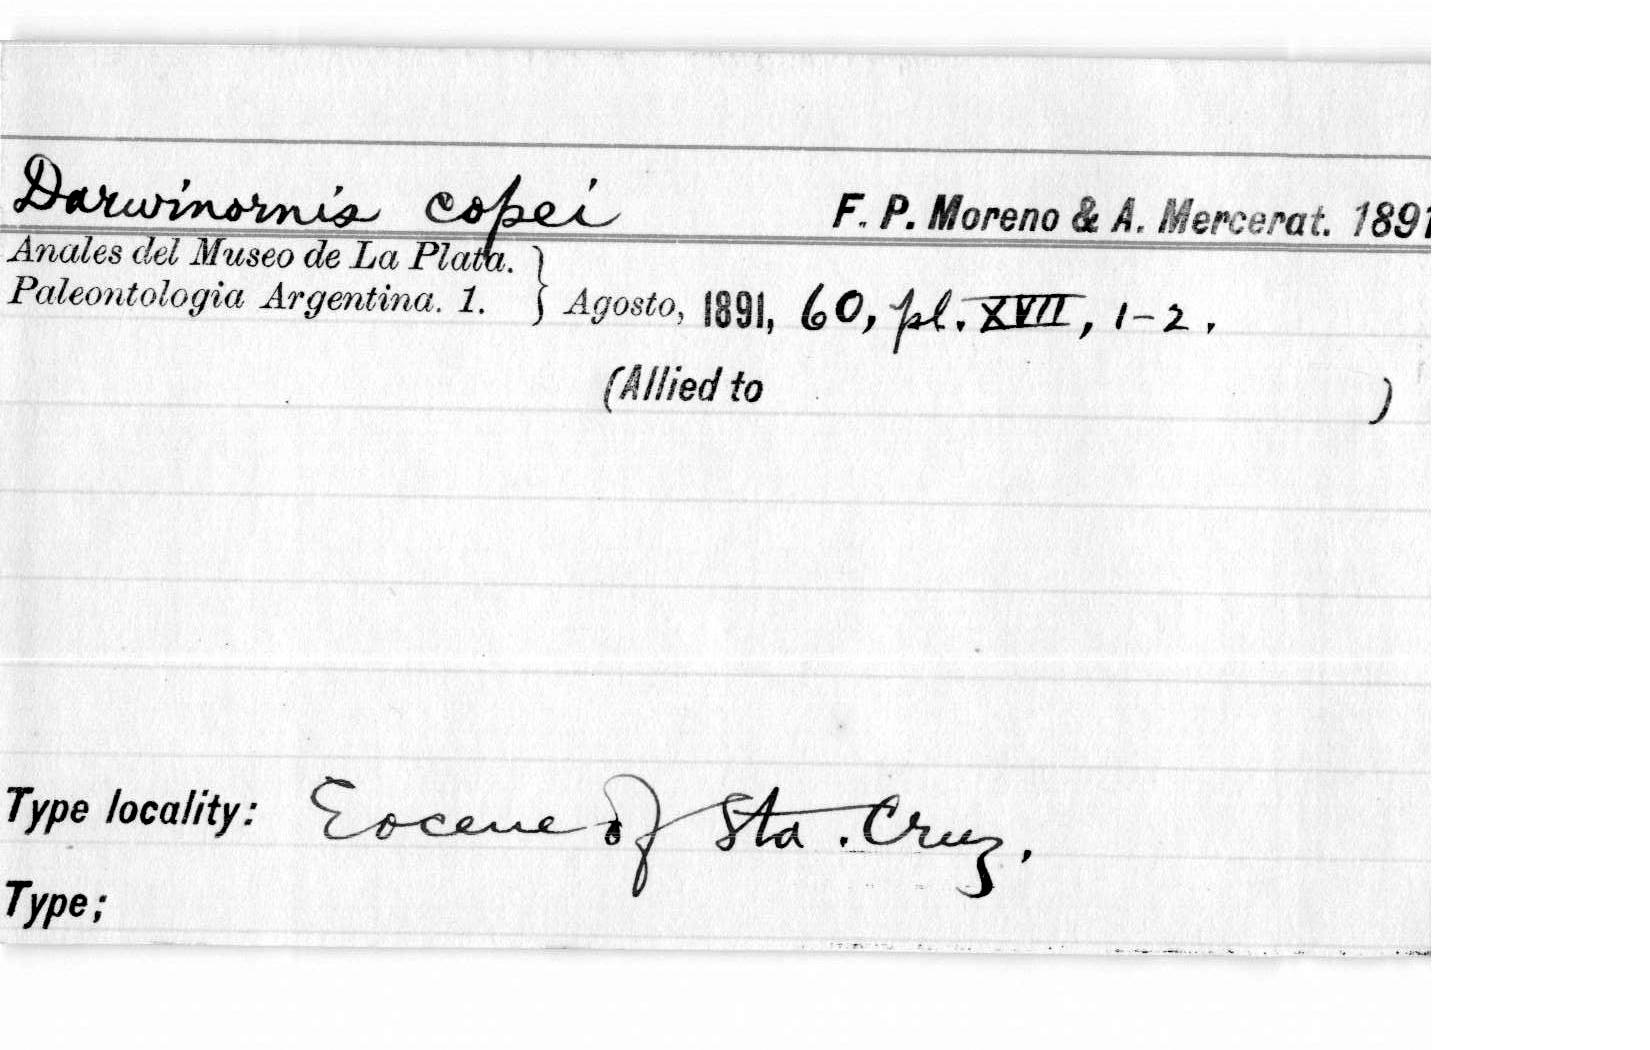 Darwinornis copei F. P. Moreno & A. Mercerat. 1891
Anales del Museo de La Plata. }
Paleontologia Argentina. 1. } Agosto, 1891, 60, pl. XVII, 1-2.
(Allied to )
Type locality: Eocene of Sta. Cruz.
Type;